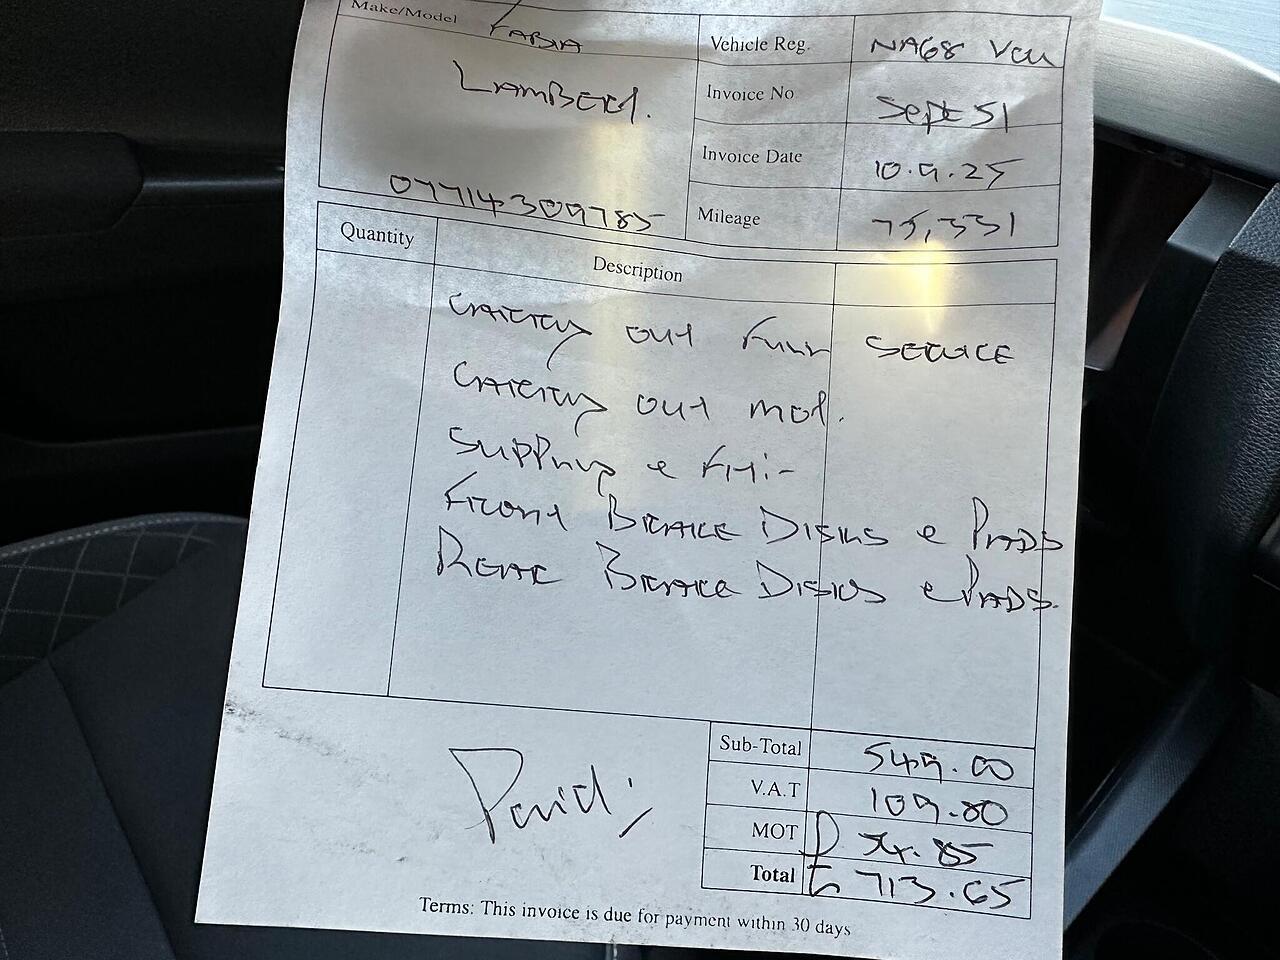 Make/Model FABIA
Vehicle Reg. NA68 VCU
LAMBERT.
Invoice No Sept 51
Invoice Date 10.9.25
07714309785
Mileage 75,331
Quantity Description
CARRY OUT FULL SERVICE
CARRY OUT MOT.
SUPPLY & FIT:-
FRONT BRAKE DISKS & PADS
REAR BRAKE DISKS & PADS.
Sub-Total 549.00
V.A.T 109.80
Paid
MOT 54.85
Total 713.65
Terms: This invoice is due for payment within 30 days